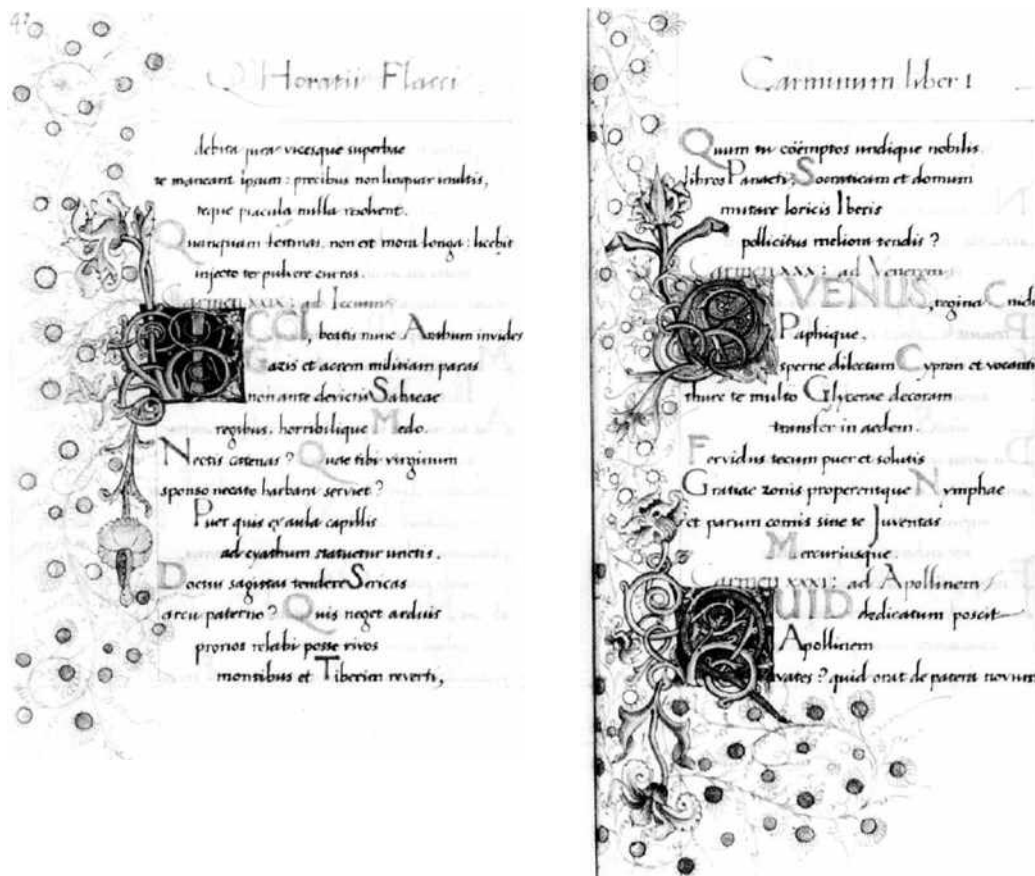 Q Horatii Flacci
debita jura vicesque superbae
te maneant ipsum: precibus non linquar inultis,
teque piacula nulla resolvent.
Quanquam festinas, non est mora longa: licebit
injecto ter pulvere curras.
Carmen XXIX: ad Iccium
ICCI, beatis nunc Arabum invides
Gazis et acrem militiam paras
non ante devictis Sabaeae
regibus, horribilique Medo
Nectis catenas? Quae tibi virginum
sponso necato barbara serviet?
Puer quis ex aula capillis
ad cyathum statuetur unctis,
Doctus sagittas tendere Sericas
arcu paterno? Quis neget arduis
pronos relabi posse rivos
montibus et Tiberim reverti,
Carminum liber I
Quum tu coëmptos undique nobilis
libros Panaeti, Socraticam et domum
mutare loricis Iberis
pollicitus meliora tendis?
Carmen XXX: ad Venerem
O VENUS, regina Cnidi
Paphique,
sperne dilectam Cypron et vocantis
thure te multo Glycerae decoram
transfer in aedem.
Fervidus tecum puer et solutis
Gratiae zonis properentque Nymphae
et parum comis sine te Juventas
Mercuriusque.
Carmen XXXI: ad Apollinem
QUID dedicatum poscit
Apollinem
vates? quid orat de patera novum